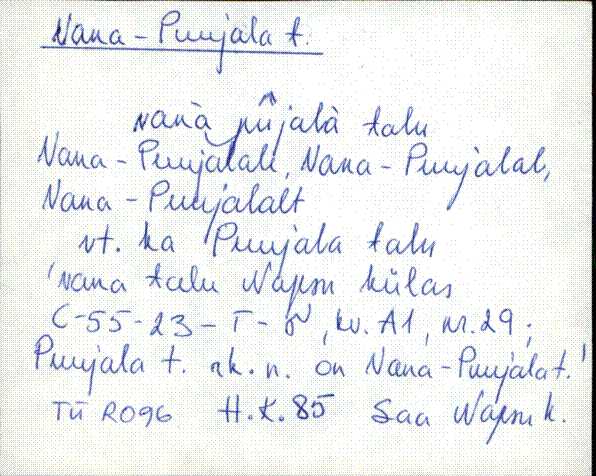 Vana-Puujala t.
vanà pūjalà talu
Vana-Puujalale, Vana-Puujalal,
Vana-Puujalalt
vt. ka Puujala talu
'vana talu külas
C-55-23- kv. A1, nr. 29;
Puujala t. rk. n. on Vana-Puujala t.'
TÜ RO96 H.K.85 Saa k.